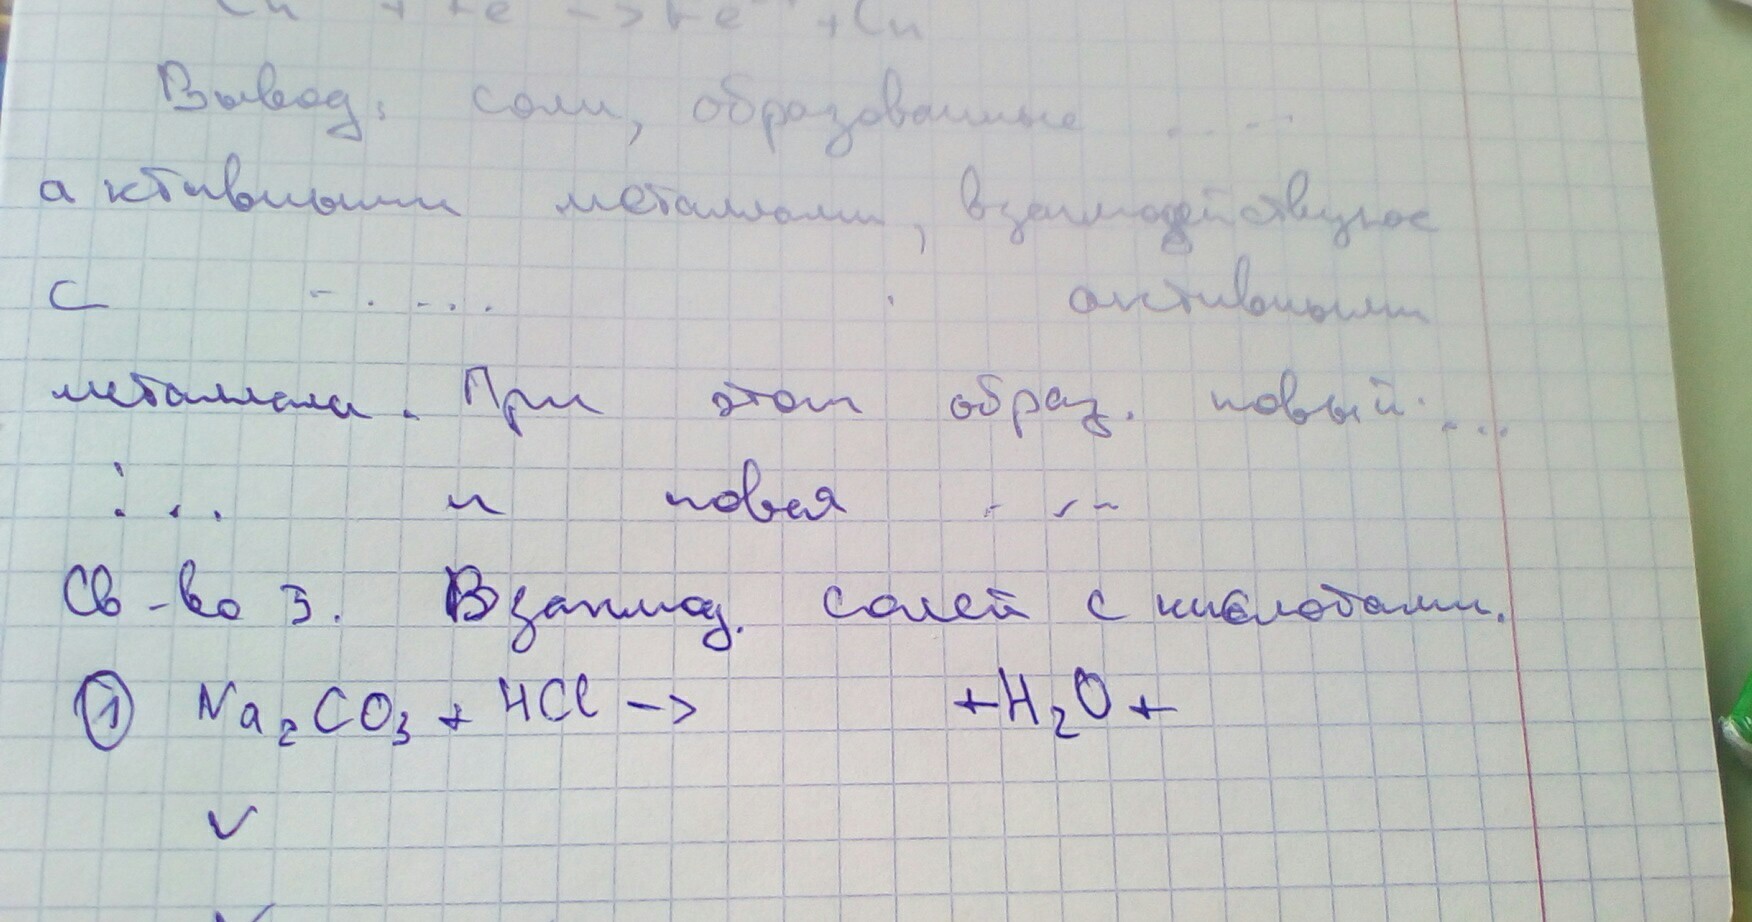 Cu + Fe -> Fe + Cu
Вывод: соли, образованные ....
активными металлами, взаимодействуют
с ..... активными
металлами. При этом образ. новый ...
... и новая ...
Св-во 3. Взаимод. солей с кислотами.
① Na₂CO₃ + HCl -> +H₂O +